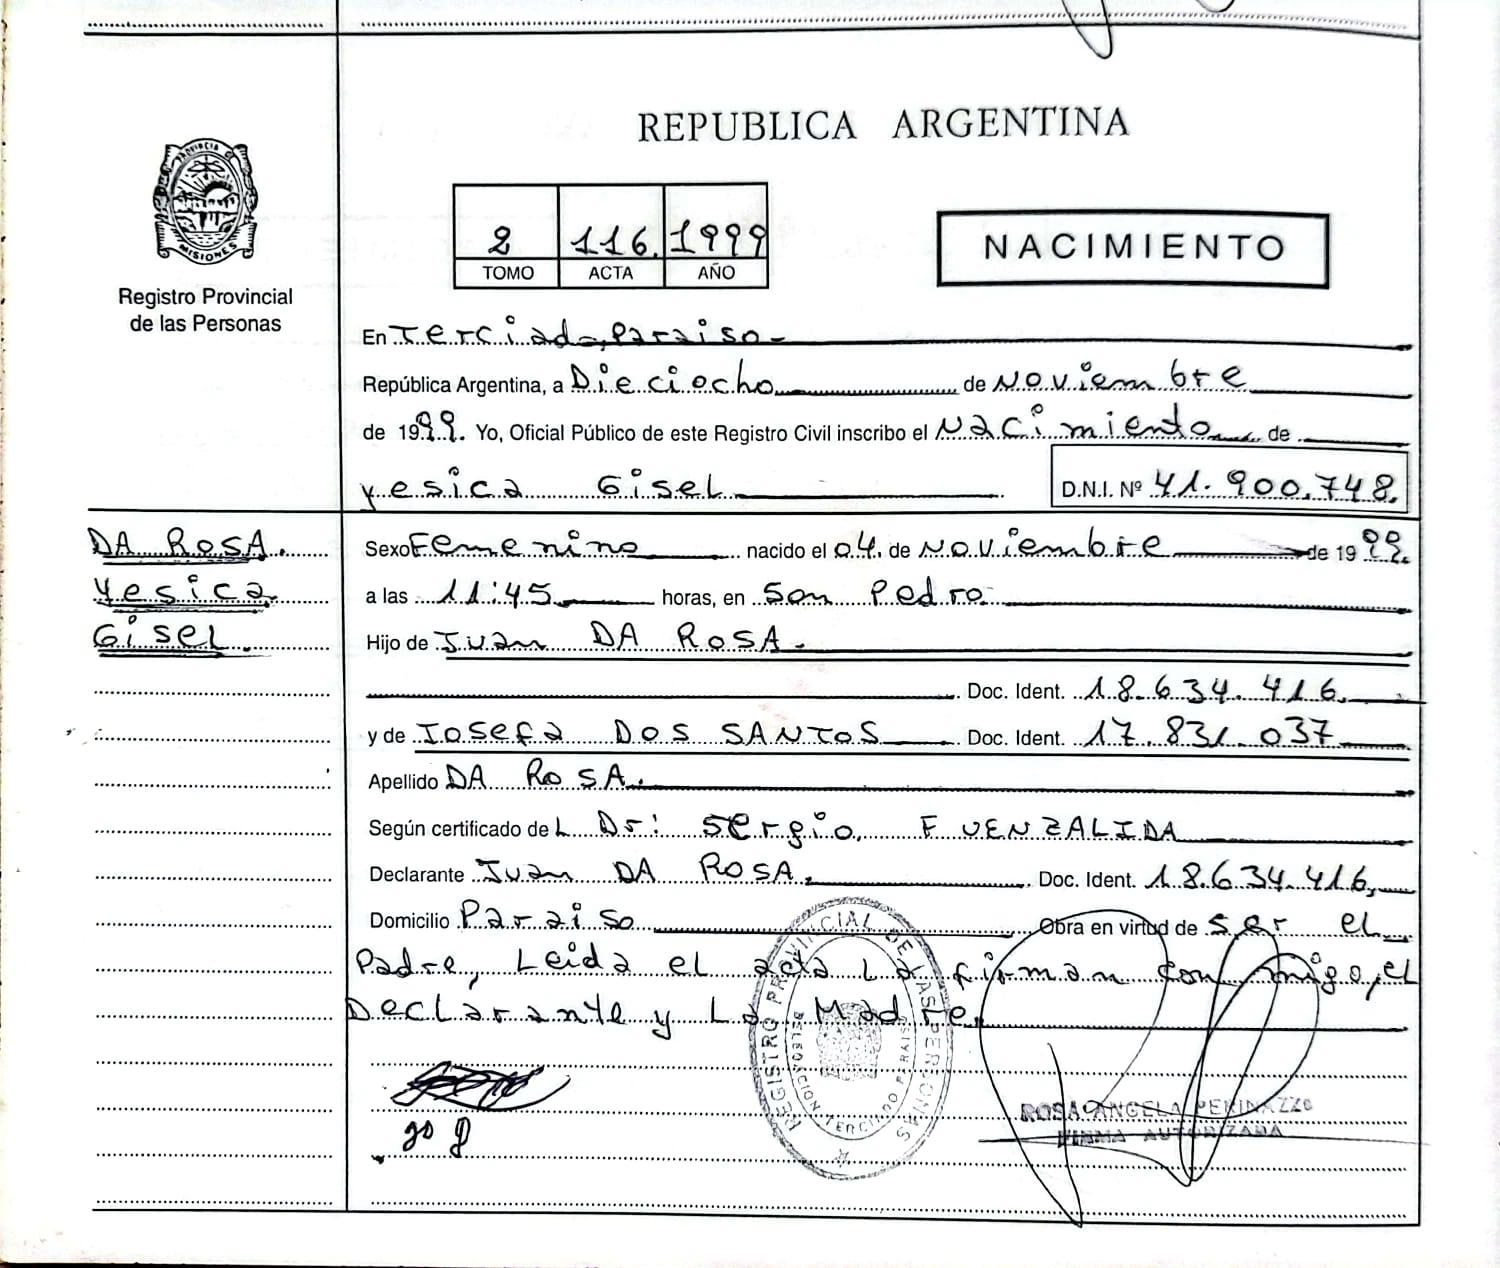 REPUBLICA ARGENTINA
PROVINCIA DE MISIONES
Registro Provincial
de las Personas
2 116. 1999
TOMO ACTA AÑO
NACIMIENTO
En Terciado Paraiso
República Argentina, a Dieciocho de Noviembre
de 1999. Yo, Oficial Público de este Registro Civil inscribo el Nacimiento de
Yesica Gisel D.N.I. Nº 41.900.748.
DA ROSA.
Yesica
Gisel.
Sexo Femenino nacido el 04. de Noviembre de 1999.
a las 11:45 horas, en San Pedro
Hijo de Juan DA ROSA.
Doc. Ident. 18.634.416.
y de Josefa DOS SANTOS Doc. Ident. 17.831.037
Apellido DA ROSA.
Según certificado deL Dr: Sergio FUENZALIDA
Declarante Juan DA ROSA. Doc. Ident. 18.634.416,
Domicilio Paraiso Obra en virtud de Ser el
Padre, Leida el acta La firman conmigo, el
Declarante y La Madre.
REGISTRO PROVINCIAL DE LAS PERSONAS
DELEGACION TERCIADO PARAISO
ROSA ANGELA PERINAZZO
FIRMA AUTORIZADA